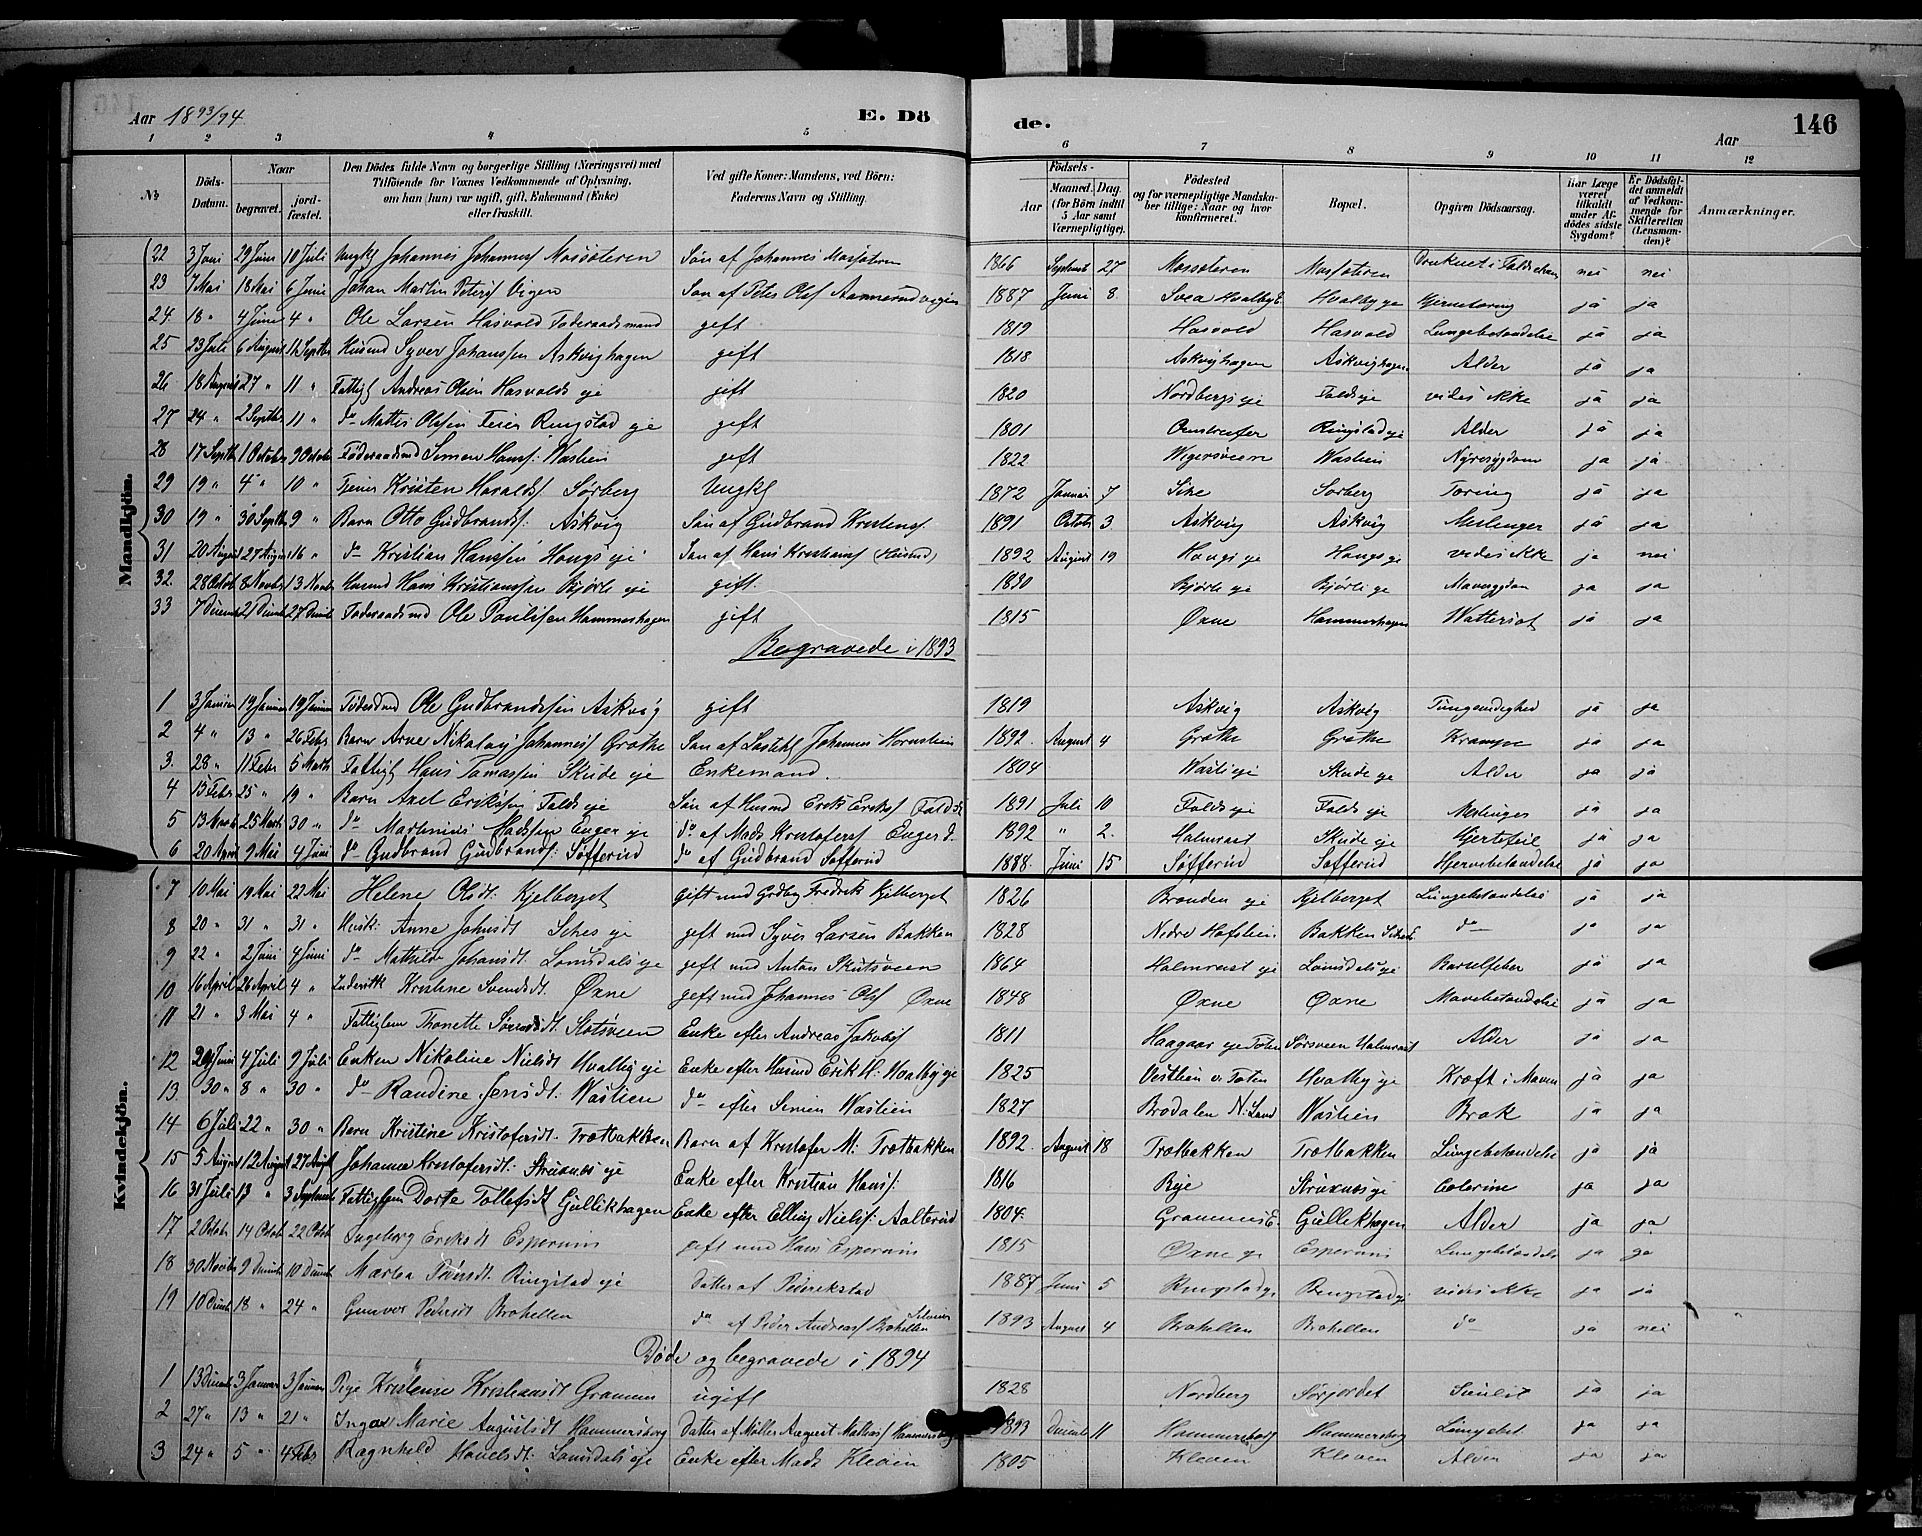 Aar 1893/94 E. Dö de. Aar 146
1 2 3 4 5 6 7 8 9 10 11 12
No Döds-Datum. Naar begravet. jord-fæstet. Den Dödes fulde Navn og borgerlige Stilling (Næringsvei) med Tilföiende for Voxnes Vedkommende af Oplysning, om han (hun) var ugift, gift, Enkemand (Enke) eller fraskilt. Ved gifte Koner: Mandens, ved Börn: Faderens Navn og Stilling. Aar Födsels- Maaned. Dag. (for Börn indtil 5 Aar samt Værnepligtige). Födested og for værnepligtige Mandskaber tillige: Naar og hvor konfirmeret. Bopæl. Opgiven Dödsaarsag. Har Læge været tilkaldt under Afdödes sidste Sygdom? Er Dödsfaldet anmeldt af Vedkommende for Skifteretten (Lensmanden)? Anmærkninger.
Mandkjön.
22 3 Juni 29 Juni 10 Juli Ungkl Johannes Johannes Mossøteren Søn af Johannes Mossøteren 1866 Septemb 27 Mossøteren Mossøteren Druknet i nei nei
23 7 Mai 18 Mai 6 Juni Johan Martin Peters Vigen Søn af Peter Olas Aannerud 1887 Juni 8 Svea Hvalbye Hvalbyeje ja ja
24 18 " 4 Juni 4 " Ole Larsen Hasvold Føderaadsmand gift 1819 Hasvold Hasvold Lungebetændelse ja ja
25 23 Juli 6 August 11 Septbr Husmd Syver Johanssen Askvighagen gift 1818 Askvighagen Askvighagen Alder ja ja
26 18 August 27 " 11 " Fattigl Andreas Olsen Hasvolds eje gift 1820 Nordbergs eje Falds eje vides ikke ja ja
27 24 " 2 Septbr 11 " do Mathis Olssen Ringstad eje gift 1801 Ringstad eje Alder ja ja
28 17 Septbr 1 October 9 October Føderaadsmd Simen Hans: Wastien gift 1822 Wastien Nyresygdom ja ja
29 19 " 4 " 10 " Tjener Kristen Haralds Sørberg Ungkl 1872 Januar 7 Sørberg Tæring ja ja
30 19 " 30 Septbr 9 " Barn Otto Gudbrands: Askvig Søn af Gudbrand Kristens 1891 Octob 3 Askvig Askvig Meslinger ja ja
31 20 August 27 August 16 " do Kristian Hanssen Hougs eje Søn af Hans Kristians (Husmd) 1892 August 19 Hougs eje Hougs eje vides ikke ja nei
32. 28 Octob 8 Novbr 13 Novbr Husmd Hans Kristianssen Bjørli eje gift 1830 Bjørli eje Bjørli eje Mavesygdom ja ja
33 7 Decemb 21 Decemb 27 Decmb Føderaadsmd Ole Poulssen Hammershagen gift 1815 Øxne Hammershagen Wattersot ja ja
Begravede i 1893
1 3 Januar 19 Januar 19 Januar Føderdmd Ole Gudbrandssen Askvig gift 1819 Askvig Askvig Tungvndighed ja ja
2 4 " 13 " 26 Febr Barn Arne Nikolay Johannes Grøthe Søn af Johannes Hornslien 1892. August 4 Grøthe Grøthe Krampe ja ja
3. 28 " 11 Febr 5 Marts Fattigl Hans Tomassen Skude eje Enkemand. 1804 Wastieje Skude eje Alder ja ja
4 15 Febr 25 " 19 " Barn Axel Erikssen Falds eje Søn af Husmd Erik Eriks 1891 Juli 10 Falds eje Falds eje Meslinger ja ja
5 13 Marts 25 Marts 30 " do Martinius Madssen Enger eje do af Mads Kristofers Enger 1892 " 2. Halmrast Skude eje Hjertefeil ja ja
6 20 April 9 Mai 4 Juni do Gudbrand Gudbrands: Søfferud do af Gudbrand Søfferud 1888. Juni 15 Søfferud Søfferud Hjernebetændelse ja ja
Kvindekjön.
7 10 Mai 19 Mai 22 Mai Helene Olsdt: Kjelberget gift med Grdbrg Fredrik Kjelberget 1826 Braaden eje Kjelberget Lungebetændelse ja ja
8 20 " 31 " 31 " Husk: Anne Johnsdt eje gift med Syver Larsen Bakken 1828 Nedre Hofslien Bakken do ja ja
9 22 " 2 Juni 4 Juni do Mathilde Johansdt. Lomsdals eje gift med Anton Skutsveen 1864 Halmrast eje Lomsdals eje Barselfeber ja ja
10 16 April 26 April 4 " Inderstk Kristine Svendsdt. Øxne gift med Johannes Ols Øxne 1848 Øxne Øxne Mavebetændelse ja ja
11 21 " 3 Mai 4 " Fattiglem Thonette Slotsveen Enke efter Andreas Jakobs 1811 Haagaar eje Toten Sørsveen Halmrast Alder ja ja
12 24 Juni 4 Juli 9 Juli Enken Nikoline Nielsdt Hvalby eje Enke efter Husmd Erik H: Hvalby eje 1825 Vestlien v. Toten Hvalby eje Kræft i Maven ja ja
13 30 " 8 " 30 " do Randine Jensdt: Wastien do efter Simen Wastien 1827 Brodalen N: Land Wastien Brok ja ja
14 6 Juli 22 " 30 " Barn Kristine Kristofersdt: Trætbakken Barn af Kristofer M: Trætbakken 1892. August 18 Trætbakken Trætbakken Lungebetændelse ja ja
15 5 August 12 August 27 Augst Johanne Kristofersdt: Struxnæs eje Enke efter Kristian Hans: 1816 Bye Struxnæs eje Colerine ja ja
16 31 Juli 13 " 3 Septemb Fattiglem Dorte Tollefsdt Gullikhagen Enke efter Elling Niels: Aalterud 1804. Grammes E. Gullikhagen Alder ja ja
17 2 Octob 14 Octob 22 Octob Ingeborg Eriksdt Espernin gift med Hans Espernin 1815 Øxne eje Espernin Lungebetændelse ja ja
18 30 Novbr 9 Decemb 10 Decmb Martea Pedersdt. Ringstad eje Datter af 1887 Juni 5 Ringstad eje Ringstad eje vides ikke ja ja
19 10 Decmb 18 " 24 " Gunvor Pedersdt Brohellen do af Peder Andreas Brohellen 1893 August 4 Brohellen Brohellen do ja nei
Døde og begravede i 1894
1 13 Decmb 3 Januar 3 Januar Pige Kristense Kristiansdt Grammen ugift 1828 Nordberg Sørjordet ja ja
2 27 " 13 " 21 " Inga Marie Augustsdt Hammersborg Datter af Møller August Mathias Hammersborg 1893 Decmb 11 Hammersborg Hammersborg Lungebet ja ja
3 24 " 5 " 4 Febr Ragnhild Hovelsdt: Lomsdals eje Enke efter Mads Kleven 1805 Kleven Kleven Alder ja ja